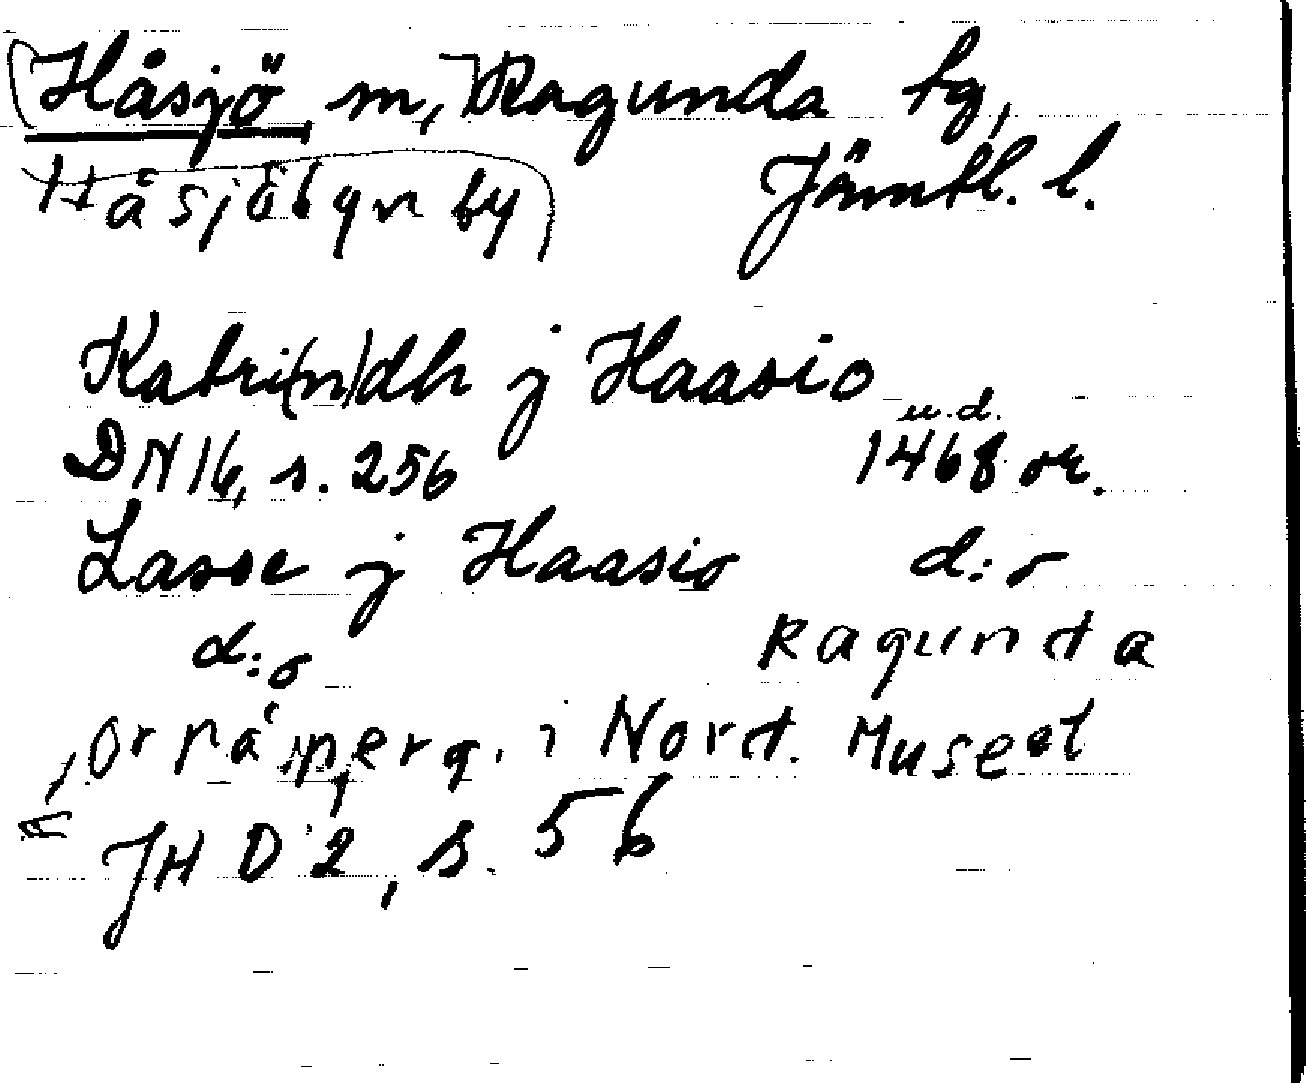 Håsjö sn, Ragunda tg,
Håsjöbyn by Jämtl. l.
Katri(n)dh j Haasio u.d.
DN 16, s. 256 1468 or.
Lasse j Haasio d:o
d:o Ragunda
or på perg. i Nord. Museet
JHD 2, s. 56